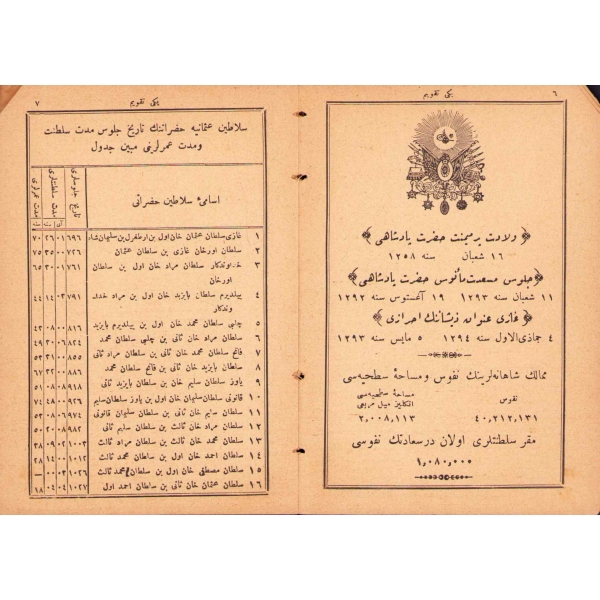 ٦
یکی تقویم
﴿ ولادت پر میمنت حضرت پادشاهی ﴾
١٦ شعبان سنه ١٢٥٨
﴿ جلوس مسعدت مأنوس حضرت پادشاهی ﴾
١١ شعبان سنه ١٢٩٣ ١٩ آغستوس سنه ١٢٩٢
﴿ غازی عنوان ذیشاننك احرازی ﴾
٤ جمادی الاول سنه ١٢٩٤ ٥ مایس سنه ١٢٩٣
ممالك شاهانه‌لرینك نفوس و مساحهٔ سطحیه سی
نفوس
مساحهٔ سطحیه سی
انكلیز میل مربعی
٤٠,٢١٢,١٣١
٢,٠٠٨,١١٣
مقر سلطنتلری اولان درسعادتك نفوسی
١,٠٨٠,٠٠٠
یکی تقویم
٧
سلاطین عثمانیه حضراتنك تاریخ جلوس مدت سلطنت
و مدت عمرلرینی مبین جدول
اسامئ سلاطین حضراتی
تاریخ جلوسلری
مدت سلطنتلری
مدت عمرلری
١ غازی سلطان عثمان خان اول بن ارطغرل بن سلیمان شاه ٦٩٦ ٠١ ٢٦ ٧٠
٢ سلطان اورخان غازی بن سلطان عثمان ٧٢٦ ٠٠ ٣٥ ٧٥
٣ خداوندكار سلطان مراد خان اول بن سلطان ٧٦١ ٠١ ٣٠ ٦٥
اورخان
٤ ییلدیرم سلطان بایزید خان اول بن مراد خدا ٧٩١ ٠٣ ١٤ ٤٤
وندكار
٥ چلبی سلطان محمد خان اول بن ییلدیرم بایزید ٨١٦ ٠٠ ٠٨ ٤٣
٦ سلطان مراد خان ثانی بن چلبی سلطان محمد ٨٢٤ ٠٦ ٣٠
٧ فاتح سلطان محمد خان ثانی بن سلطان مراد ثانی ٨٥٥ ٠١ ٣١ ٥٣
٨ سلطان بایزید خان ثانی بن فاتح سلطان محمد ٨٨٦ ٠٠ ٣٢ ٦٧
٩ یاوز سلطان سلیم خان اول بن سلطان بایزید ثانی ٩١٨ ٠٨ ٠٨ ٥١
١٠ قانونی سلطان سلیمان خان اول بن یاوز سلطان سلیم ٩٢٦ ٠٠ ٤٨ ٧٤
١١ سلطان سلیم خان ثانی بن سلطان سلیمان قانونی ٩٧٤ ٠٦ ٠٨ ٥٣
١٢ سلطان مراد خان ثالث بن سلطان سلیم ثانی ٩٨٢ ٠٨ ٢٠ ٥٠
١٣ سلطان محمد خان ثالث بن سلطان مراد ثالث ١٠٠٣ ٠٢ ٠٩ ٣٨
١٤ سلطان احمد خان اول بن سلطان محمد ثالث ١٠١٢ ٠٤ ١٤ ٢٨
١٥ سلطان مصطفی خان اول بن سلطان محمد ثالث ١٠٢٦ ٠٣ ٠٠ —
١٦ سلطان عثمان خان ثانی بن سلطان احمد اول ١٠٢٧ ٠٤ ٠٤ ١٨